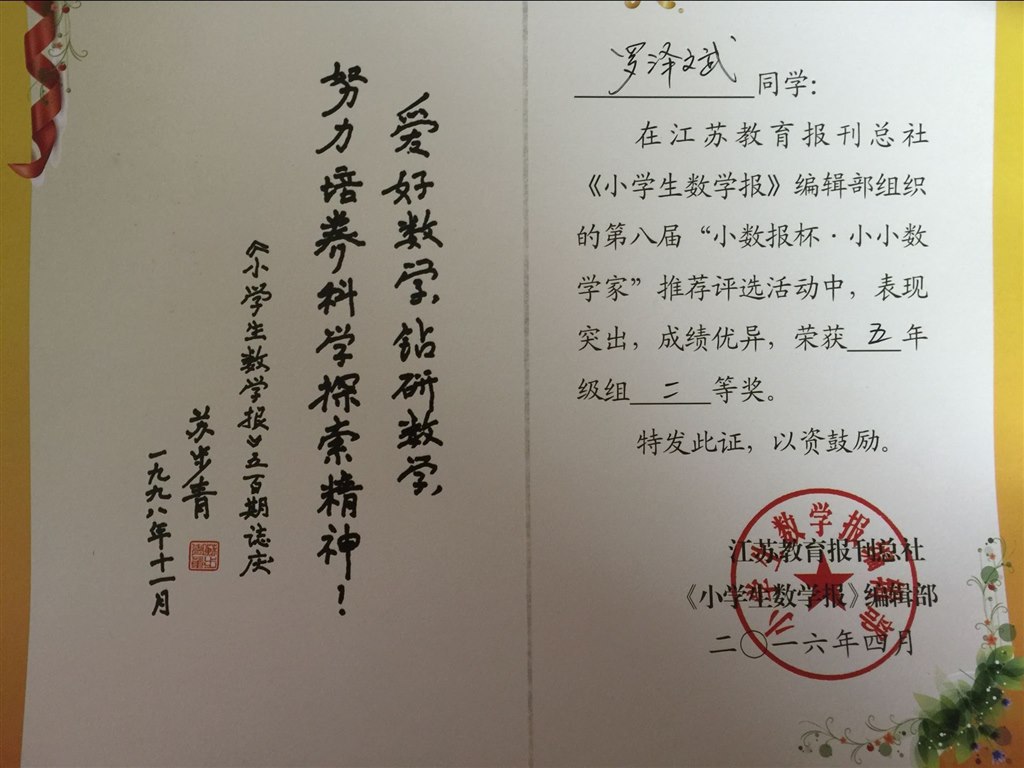 爱好数学,钻研数学,
努力培养科学探索精神!
《小学生数学报》五百期志庆
苏步青
一九九八年十一月
罗泽文武 同学:
在江苏教育报刊总社
《小学生数学报》编辑部组织
的第八届“小数报杯·小小数
学家”推荐评选活动中,表现
突出,成绩优异,荣获 五 年
级组 二 等奖。
特发此证,以资鼓励。
江苏教育报刊总社
《小学生数学报》编辑部
二〇一六年四月
小学生数学报编辑部